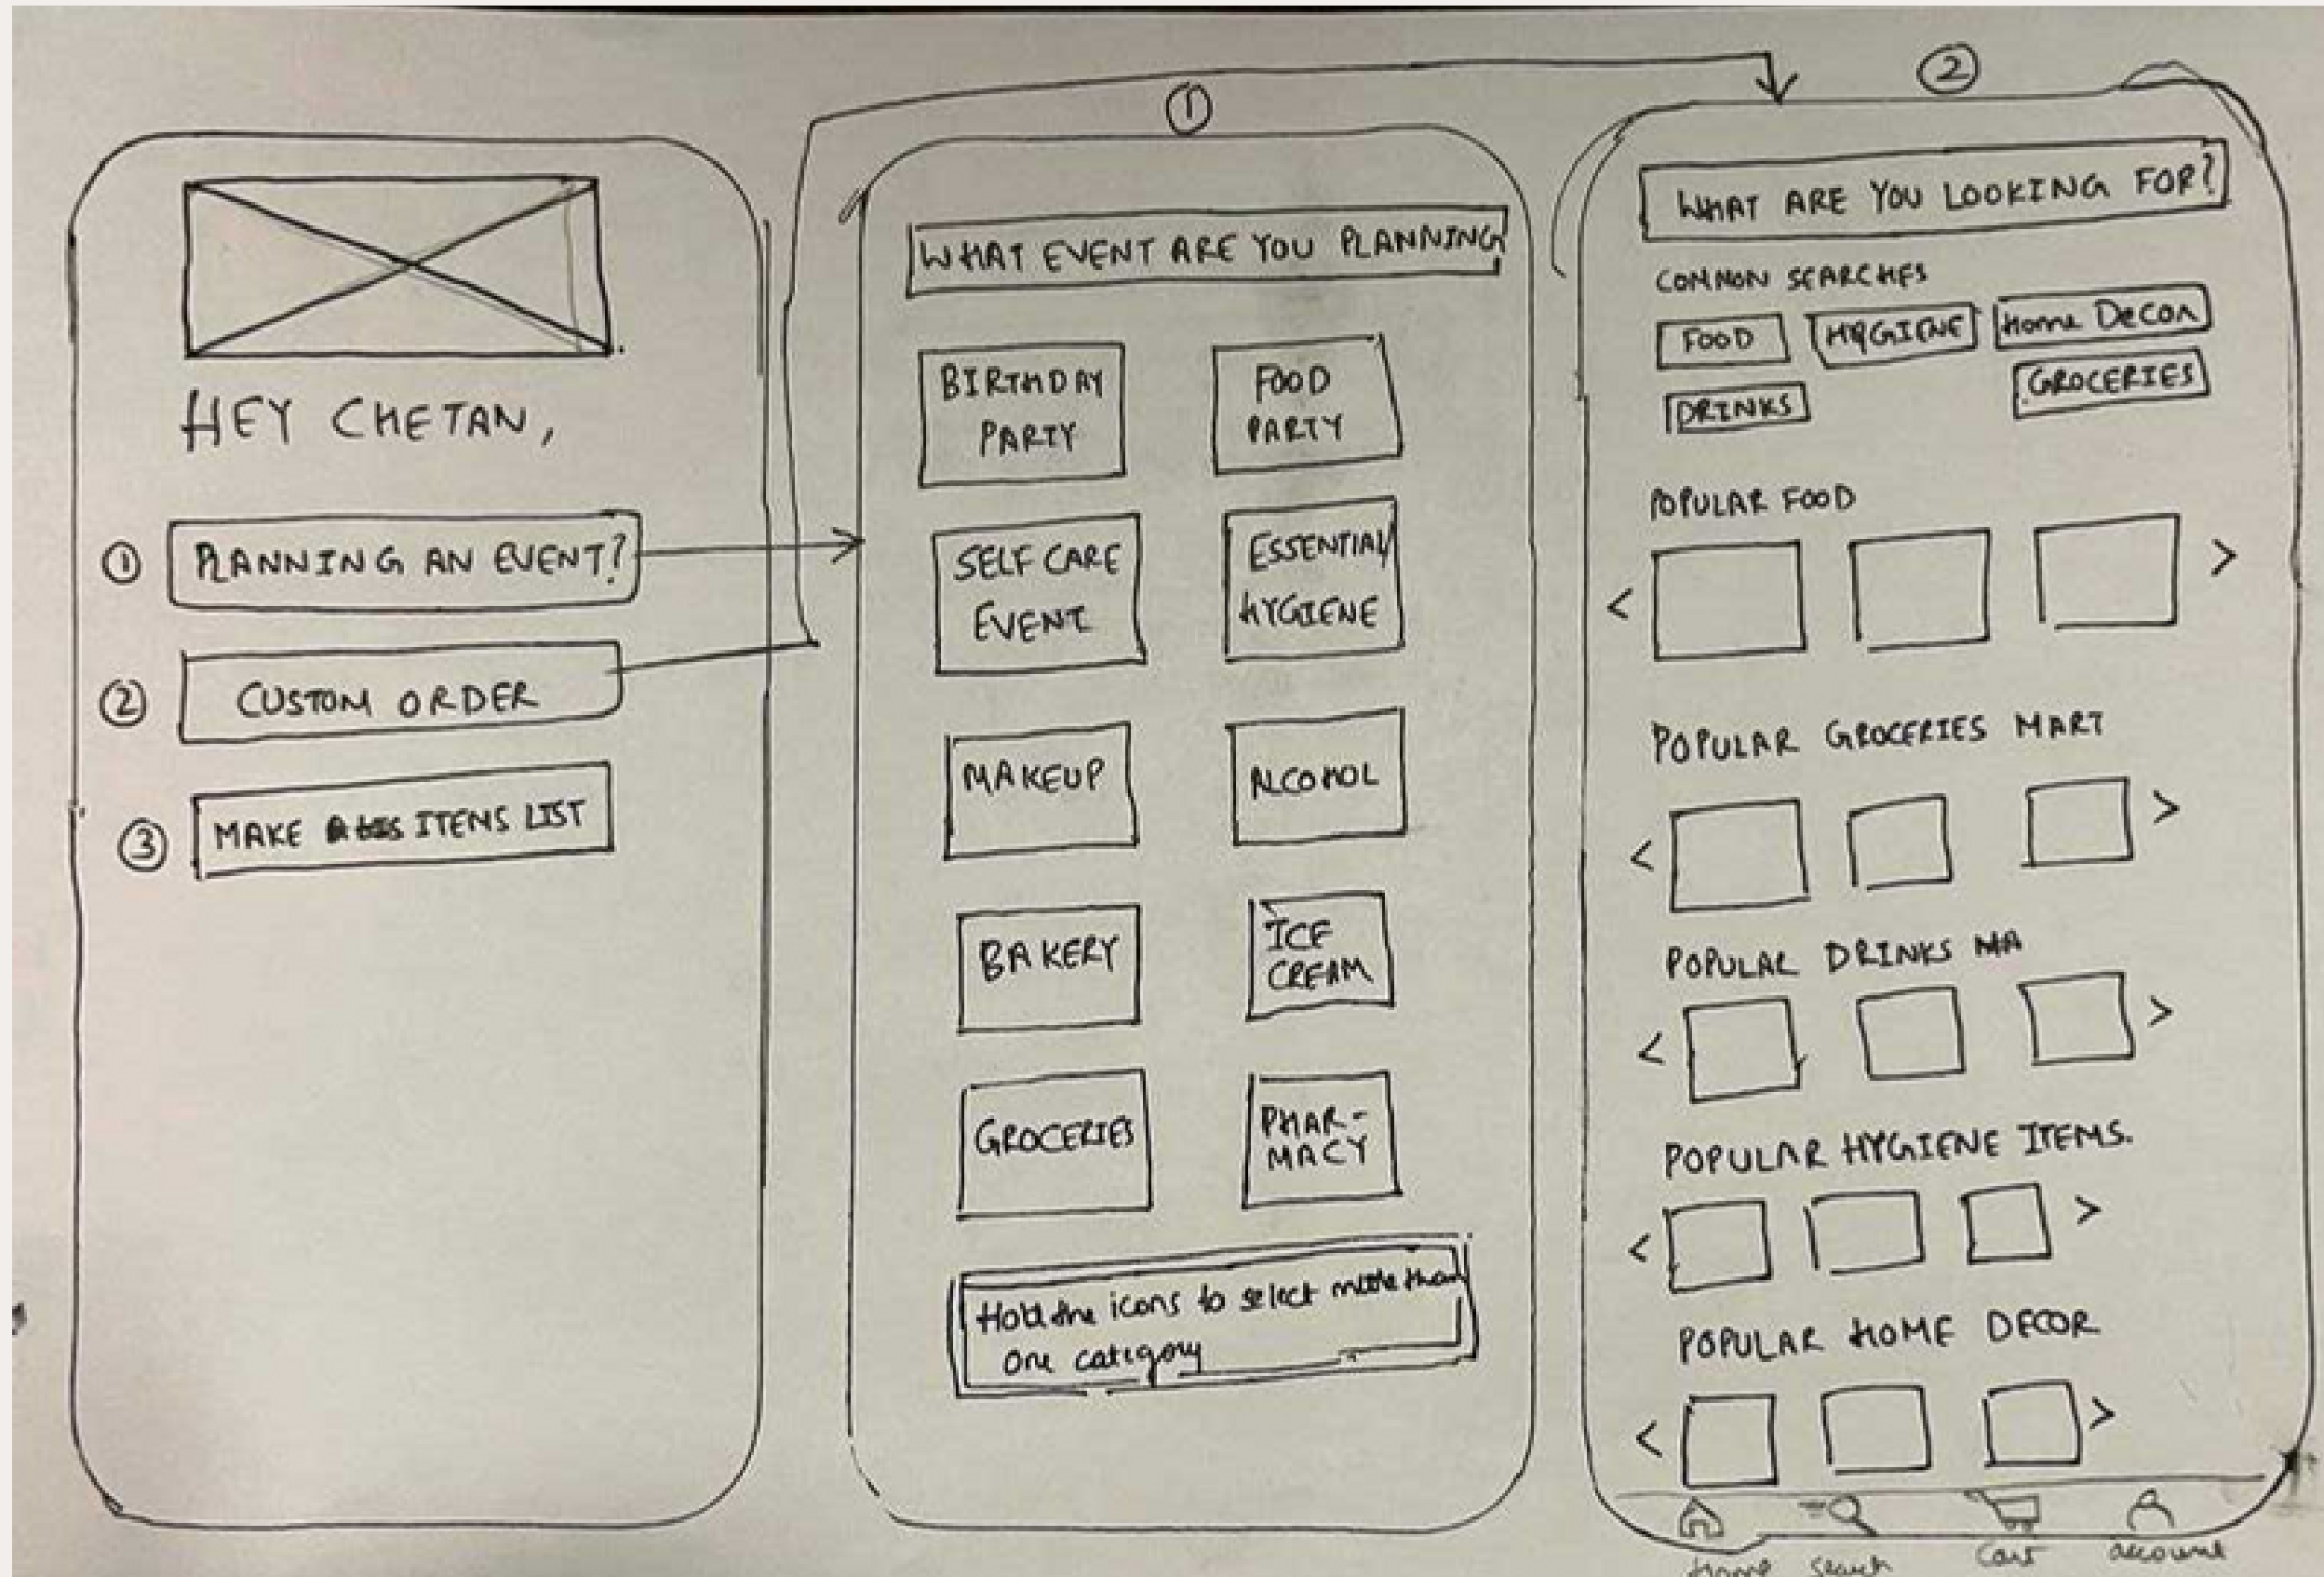 HEY CHETAN,
① PLANNING AN EVENT?
② CUSTOM ORDER
③ MAKE ITEMS LIST
①
WHAT EVENT ARE YOU PLANNING
BIRTHDAY
PARTY
FOOD
PARTY
SELF CARE
EVENT
ESSENTIAL/
HYGIENE
MAKEUP
ALCOHOL
BAKERY
ICE
CREAM
GROCERIES
PHAR-
MACY
Hold the icons to select more than
one category
②
WHAT ARE YOU LOOKING FOR?
COMMON SEARCHES
FOOD
HYGIENE
Home Decor
DRINKS
GROCERIES
POPULAR FOOD
< >
POPULAR GROCERIES MART
< >
POPULAR DRINKS MA
< >
POPULAR HYGIENE ITEMS.
< >
POPULAR HOME DECOR
< >
Home Search Cart account